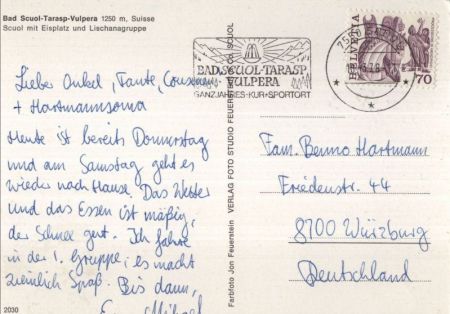 Bad Scuol-Tarasp-Vulpera 1250 m, Suisse
Scuol mit Eisplatz und Lischanagruppe
Lieber Onkel, Tante, Cousinen
+ Hartmannsoma
Heute ist bereits Donnerstag
und am Samstag geht es
wieder nach Hause. Das Wetter
und das Essen ist mäßig,
der Schnee gut. Ich fahre
in der 1. Gruppe; es macht
ziemlich Spaß. Bis dann,
Michael
2030
Farbfoto Jon Feuerstein VERLAG FOTO STUDIO FEUERSTEIN SCUOL
BAD SCUOL-TARASP-
VULPERA
GANZJAHRES-KUR+SPORTORT
HELVETIA
70
Fam. Benno Hartmann
Friedenstr. 44
8700 Würzburg
Deutschland